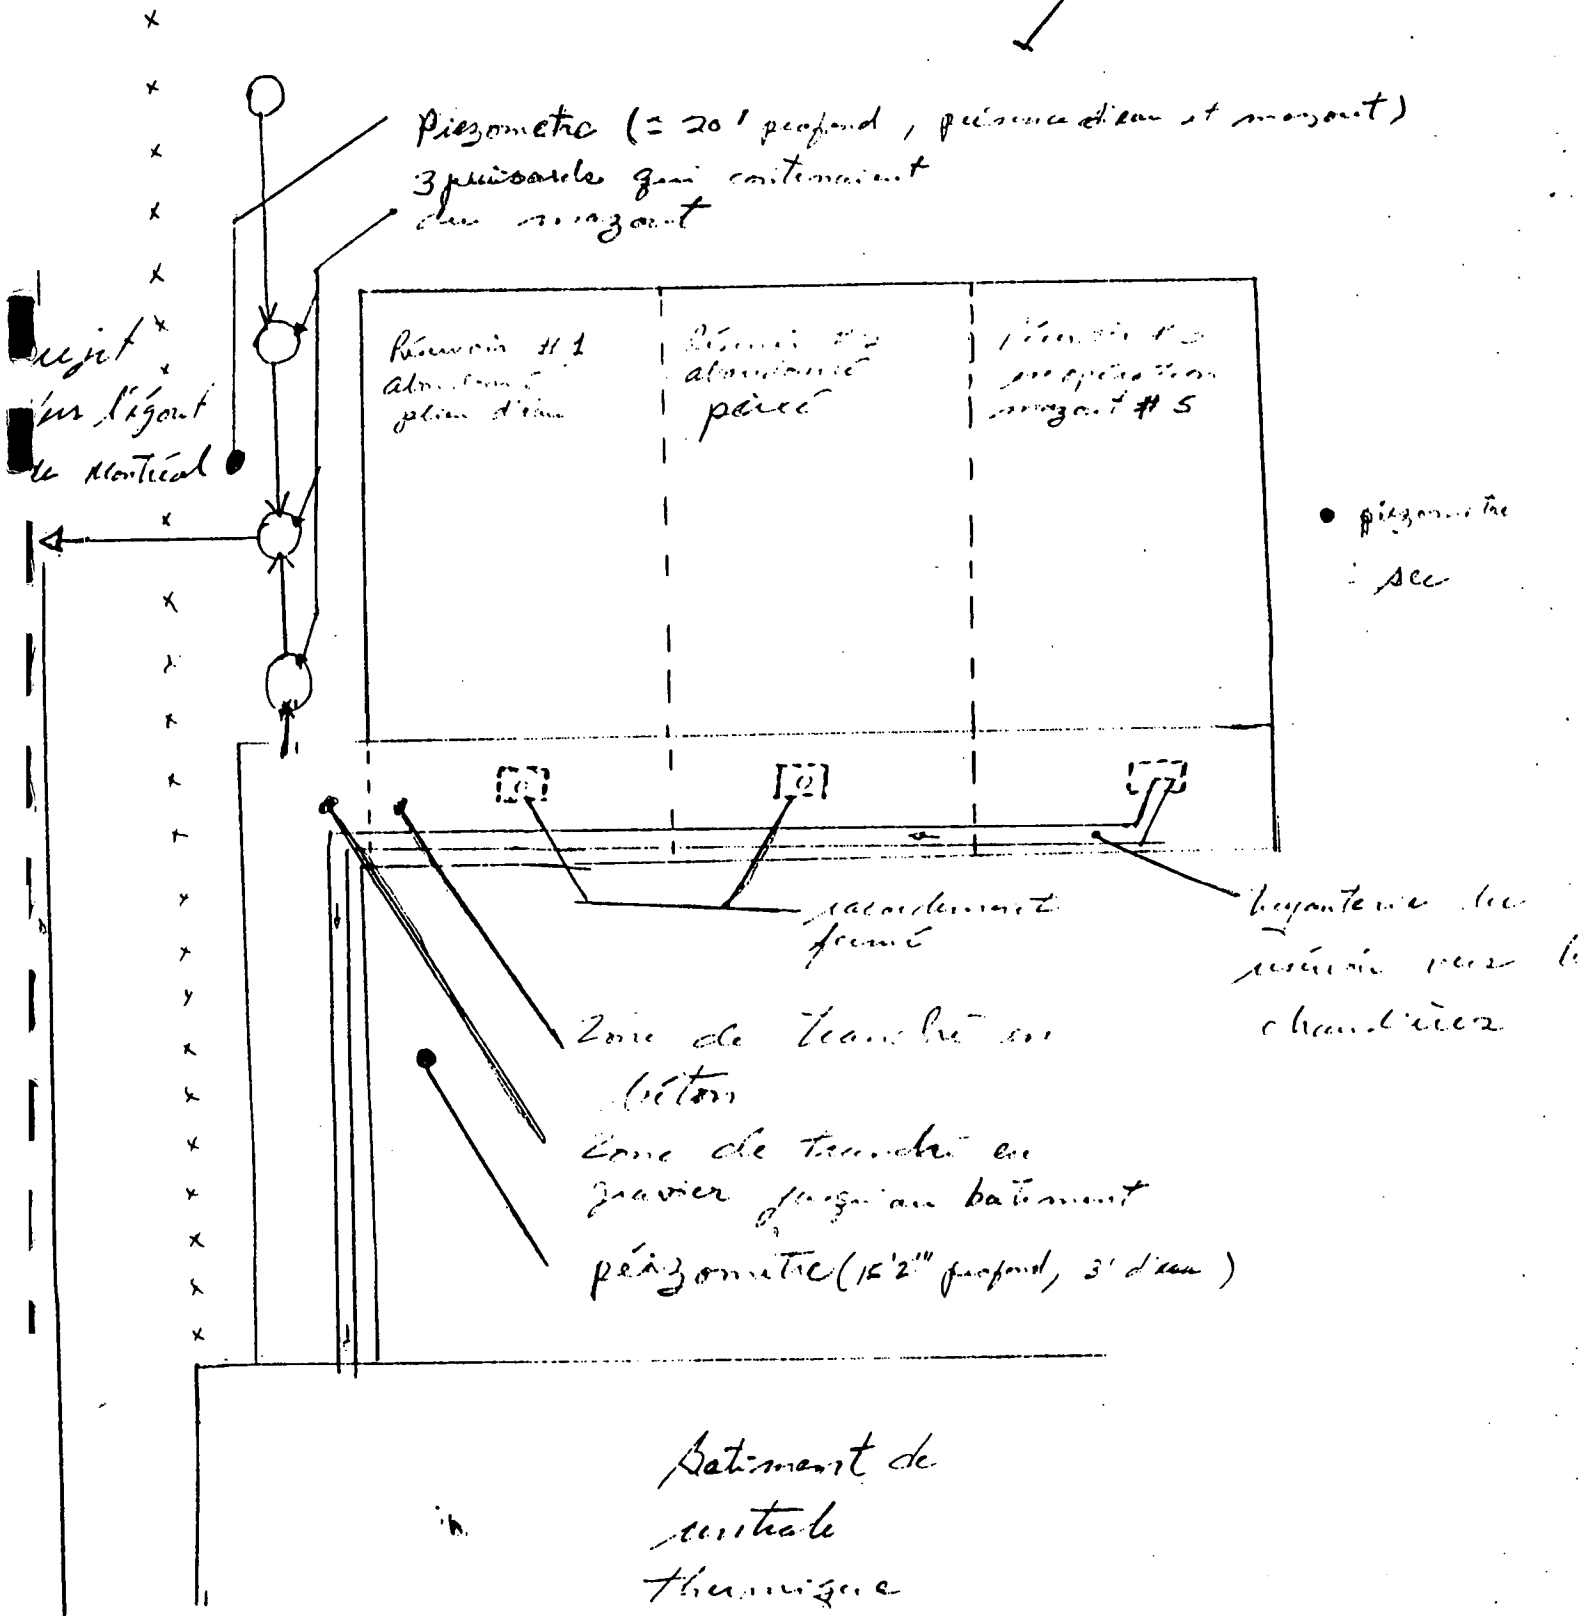 Piezometre (= 20' profond, présence d'eau et mazout)
3 puisards qui contenaient
du mazout
Réservoir #1
abandonné
plein d'eau
Réservoir #2
abandonné
percé
Réservoir #3
en opération
mazout #5
rejet
vers l'égout
de Montréal
piézomètre
sec
racordement
fermé
tuyauterie du
réservoir vers
chaudières
Zone de tranché en
béton
Zone de tranché en
gravier jusqu'au batiment
péizomètre (15'2" profond, 3' d'eau)
Batiment de
centrale
thermique